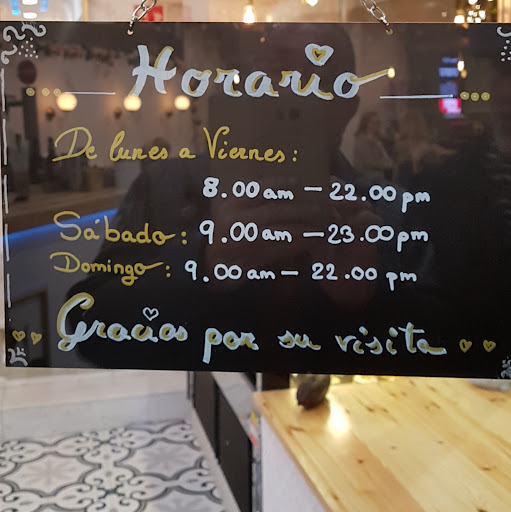 Horario
De lunes a Viernes:
8.00 am - 22.00 pm
Sábado: 9.00 am - 23.00 pm
Domingo: 9.00 am - 22.00 pm
Gracias por su visita